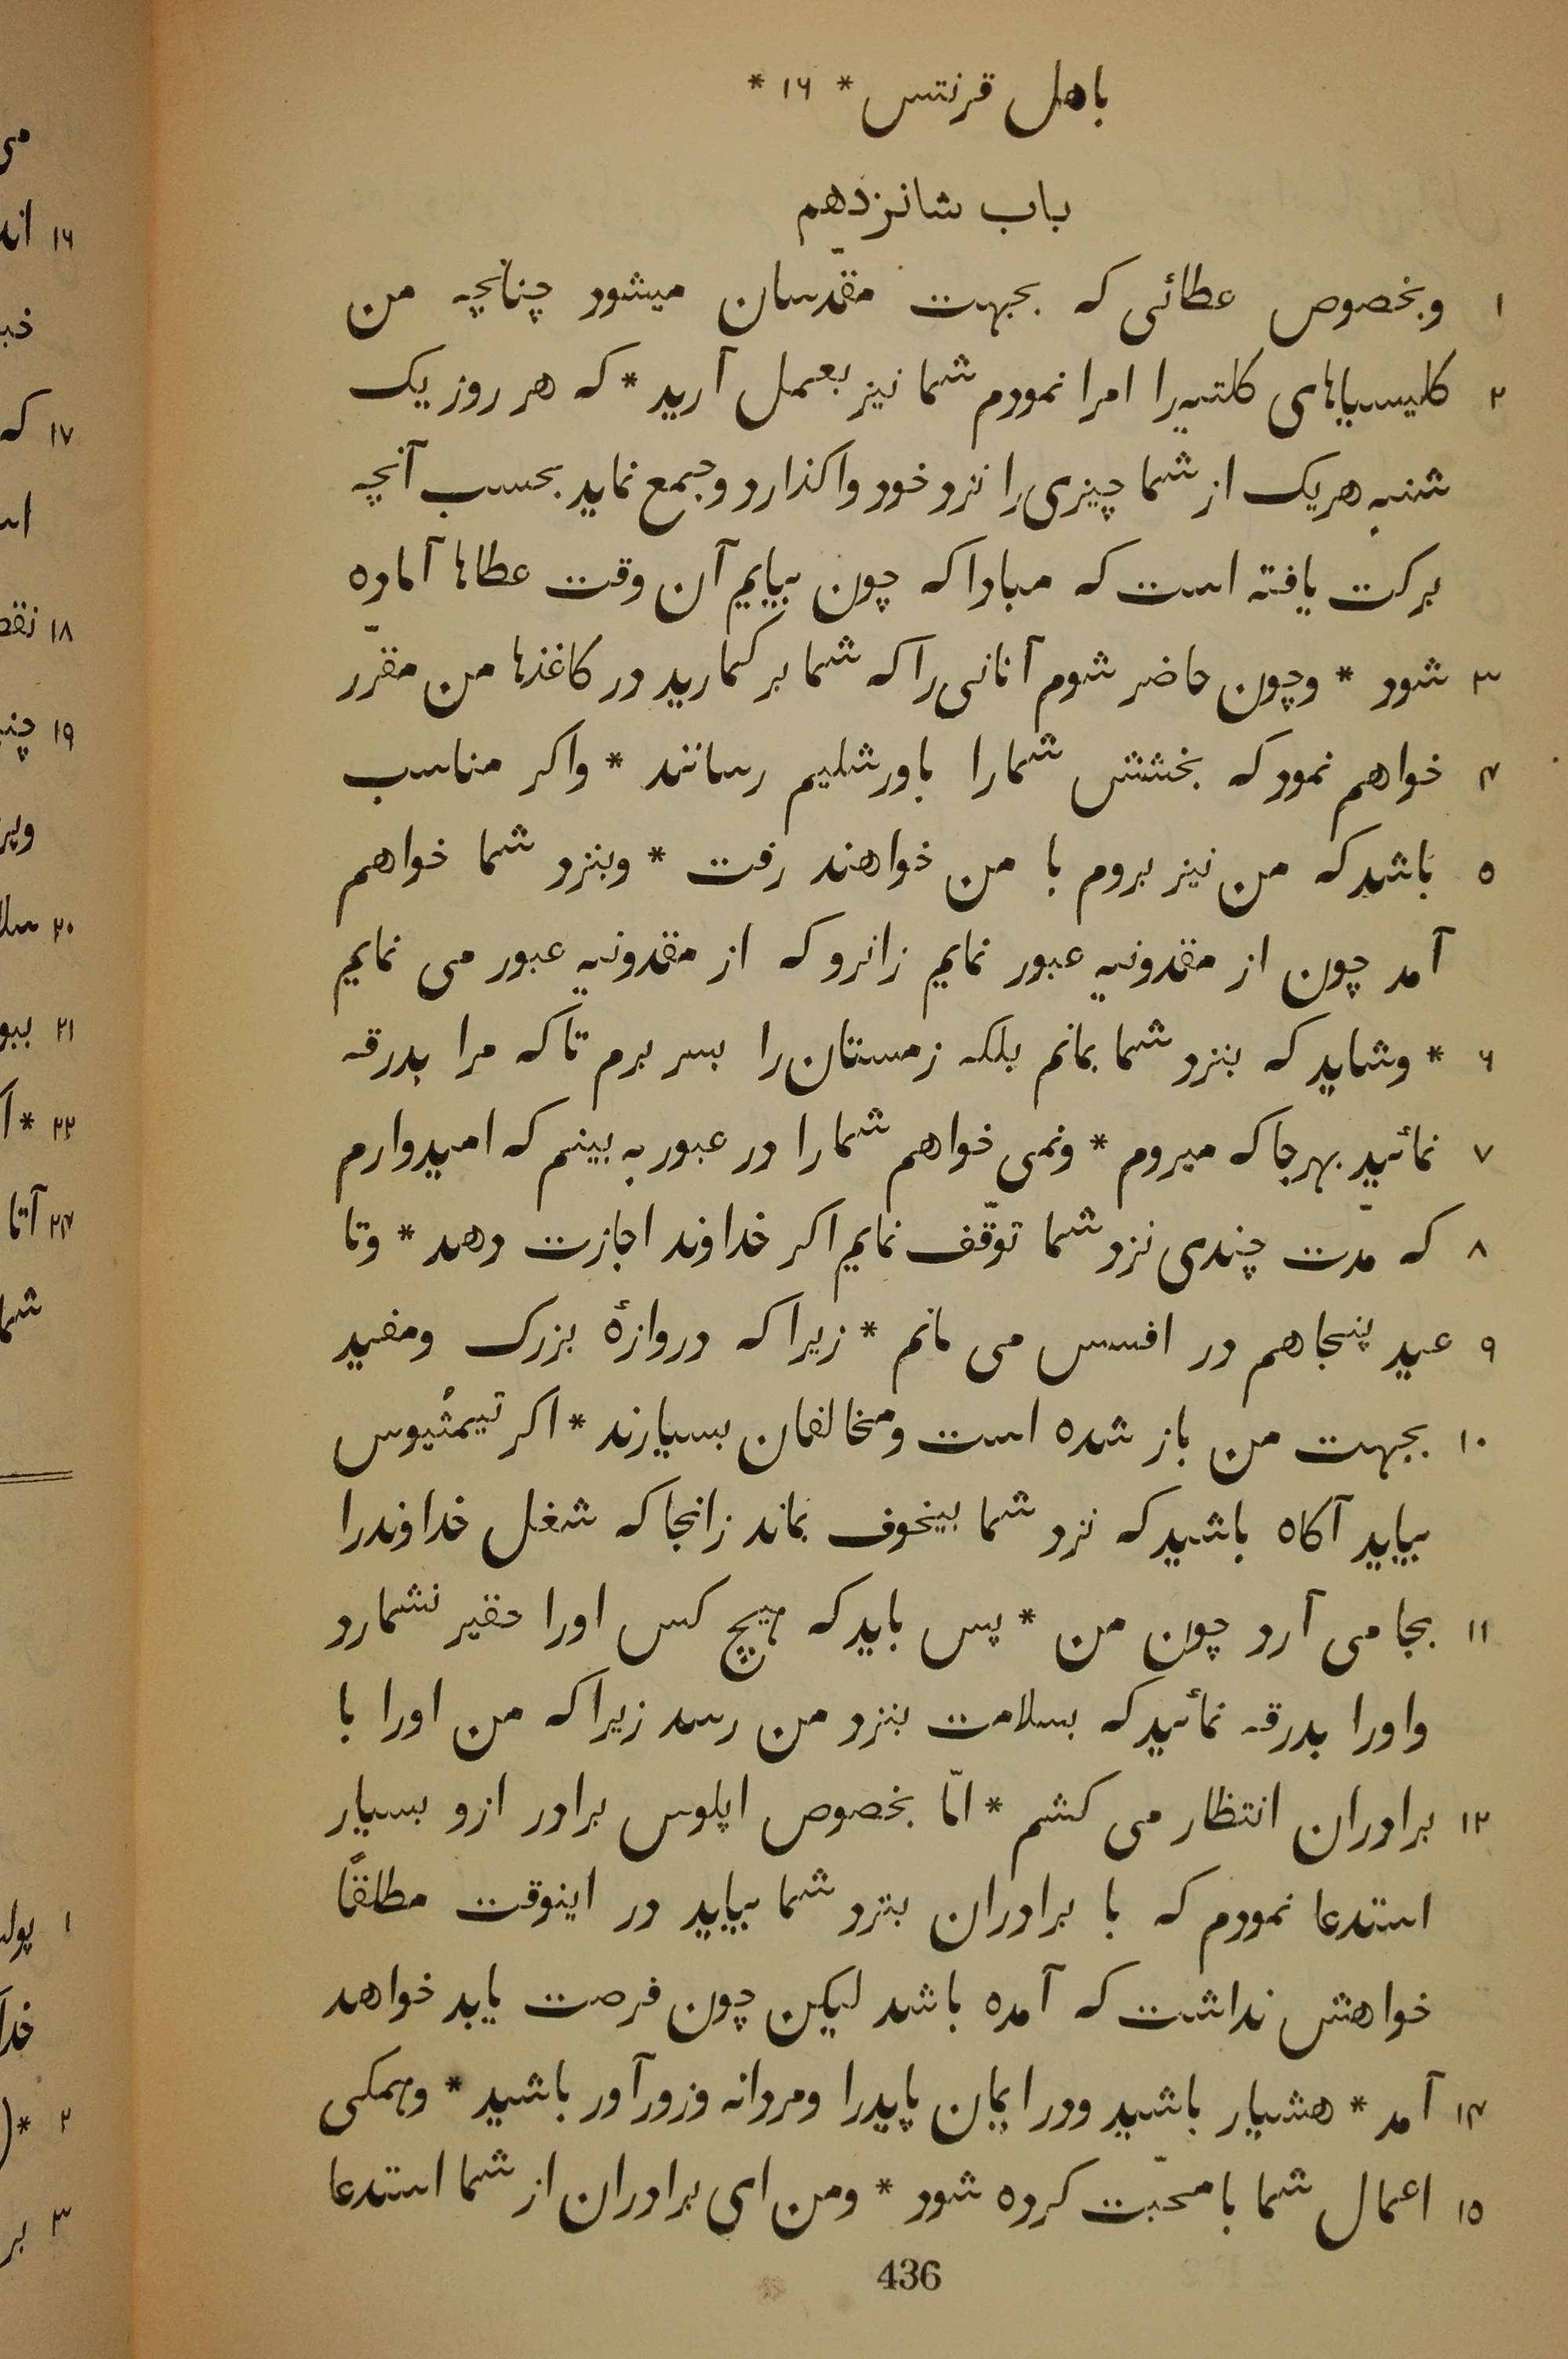 باهل قرنتس * ۱۶ *
باب شانزدهم
۱ وبخصوص عطائی که بجهت مقدّسان میشود چنانچه من
۲ کلیسیاهای کلتیه‌را امرا نمودم شما نیز بعمل آرید * که هر روز یک
شنبه هریک از شما چیزی را نزد خود واکذارد وجمع نماید بحسب آنچه
برکت یافته است که مبادا که چون بیایم آن وقت عطاها آماده
۳ شود * وچون حاضر شوم آنانی را که شما برکمارید در کاغذها من مقرّر
۴ خواهم نمود که بخشش شمارا باورشلیم رسانند * واکر مناسب
۵ باشد که من نیز بروم با من خواهند رفت * وبنزد شما خواهم
آمد چون از مقدونیه عبور نمایم زانرو که از مقدونیه عبور می نمایم
۶ * وشاید که بنزد شما بمانم بلکه زمستان را بسر برم تا که مرا بدرقه
۷ نمائید بهرجا که میروم * ونمی خواهم شمارا در عبور به بینم که امیدوارم
۸ که مدّت چندی نزد شما توقّف نمایم اکر خداوند اجازت دهد * وتا
۹ عید پنجاهم در افسس می مانم * زیرا که دروازهٔ بزرک ومفید
۱۰ بجهت من باز شده است ومخالفان بسیارند * اکر تیمثیوس
بیاید آکاه باشید که نزد شما بیخوف بماند زانجا که شغل خداوندرا
۱۱ بجا می آرد چون من * پس باید که هیچ کس اورا حقیر نشمارد
واورا بدرقه نمائید که بسلامت بنزد من رسد زیرا که من اورا با
۱۲ برادران انتظار می کشم * امّا بخصوص اپلوس برادر ازو بسیار
استدعا نمودم که با برادران بنزد شما بیاید در اینوقت مطلقًا
خواهش نداشت که آمده باشد لیکن چون فرصت یابد خواهد
۱۴ آمد * هشیار باشید ودر ایمان پایدرا ومردانه وزورآور باشید * وهمکی
۱۵ اعمال شما با محبّت کرده شود * ومن ای برادران از شما استدعا
436